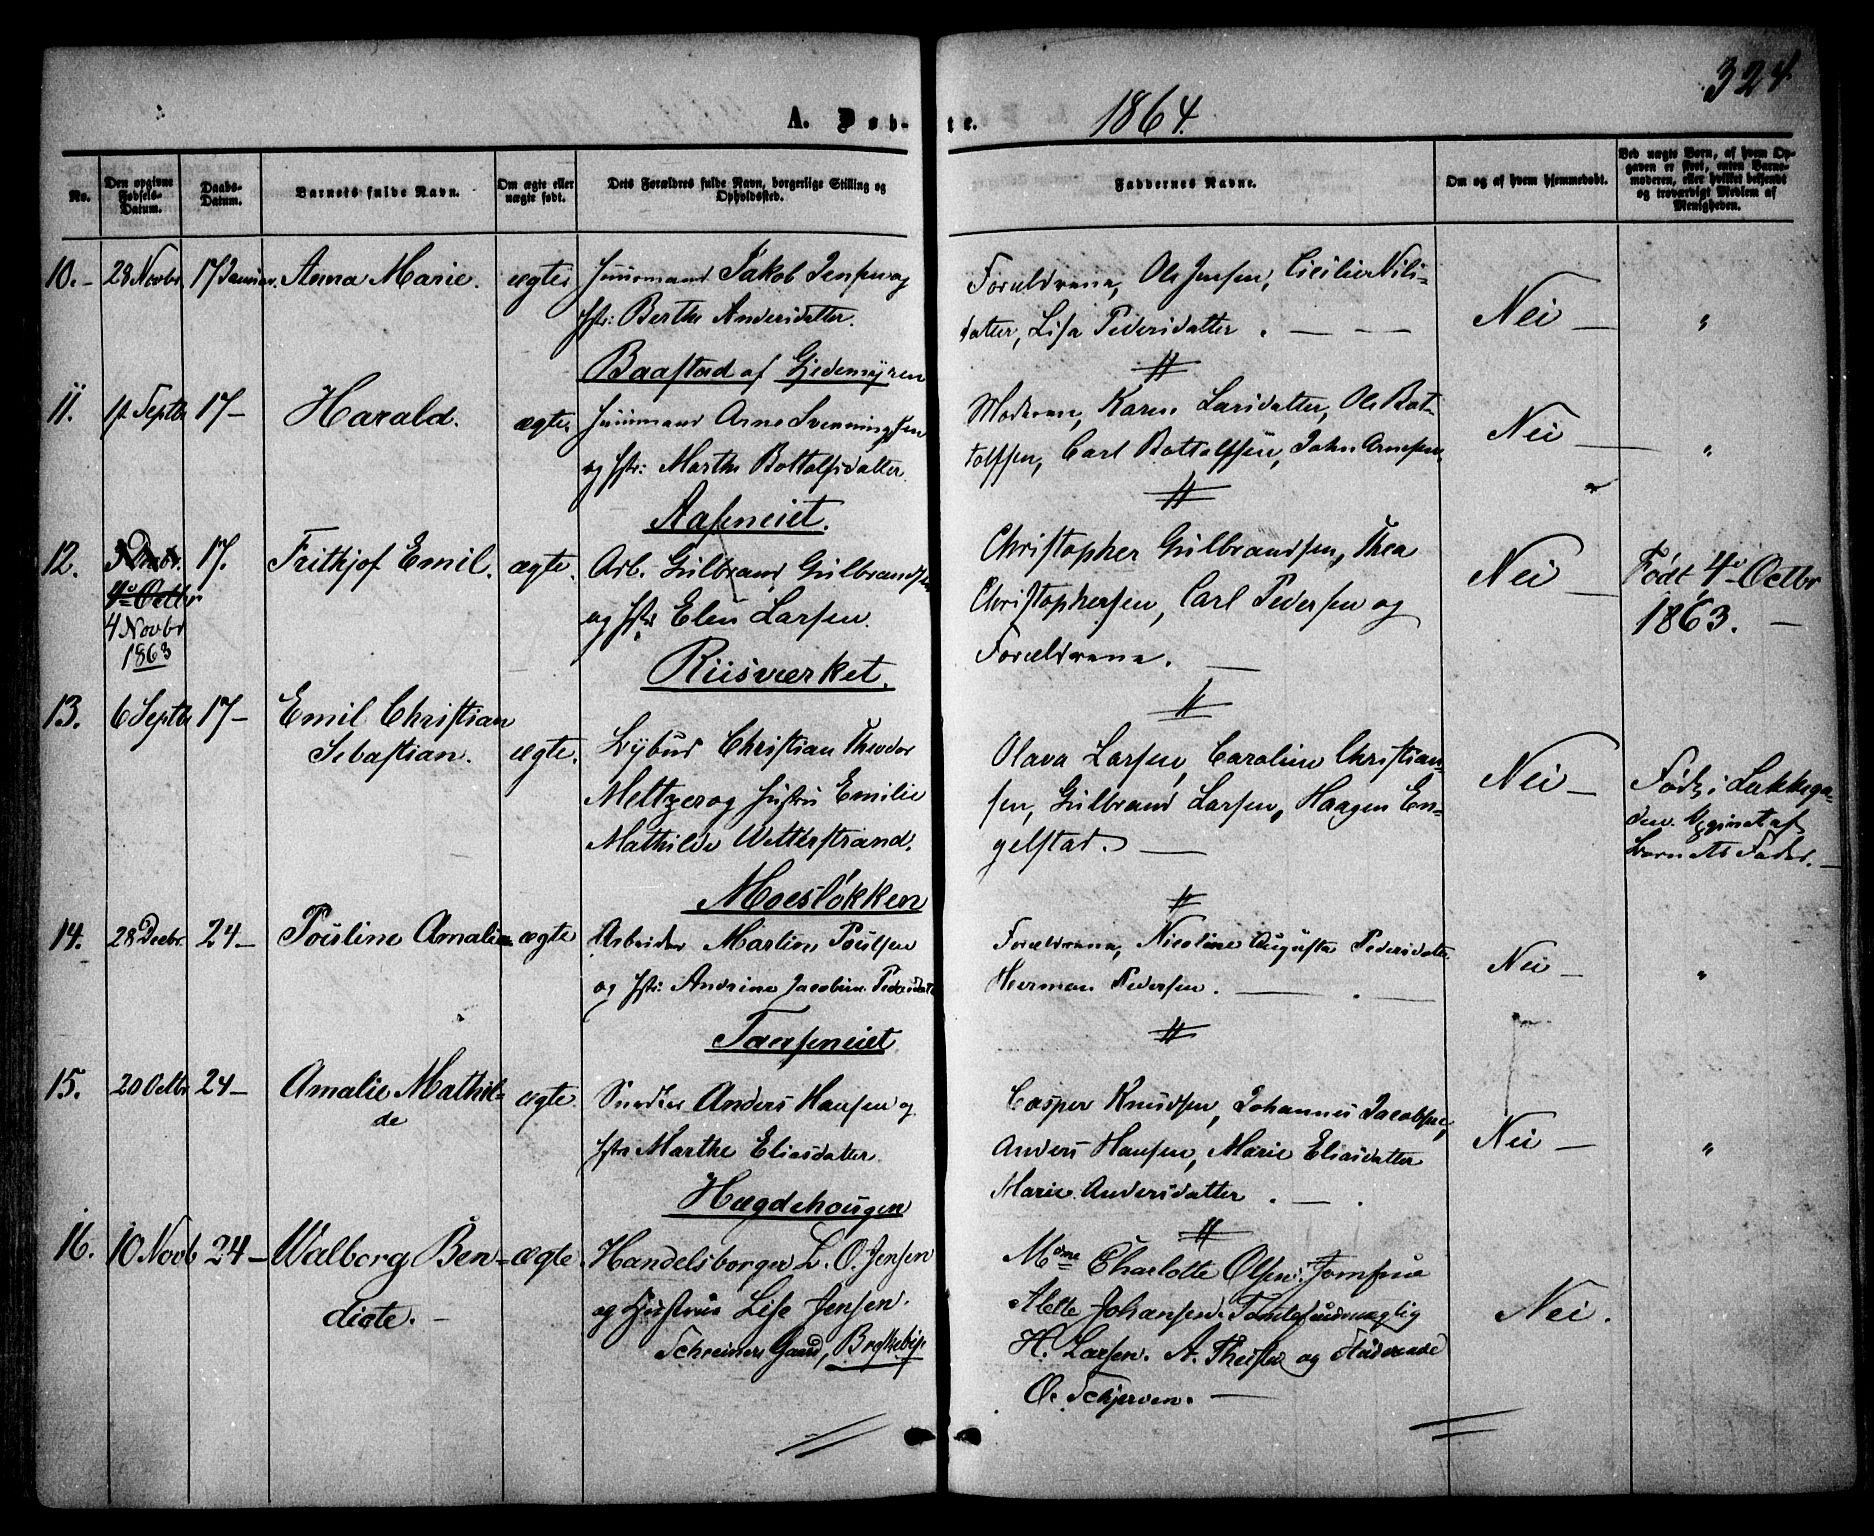 324.
A. Døb- te. 1864.
No.
Den opgivne Fødsels-Datum.
Daabs-Datum.
Barnets fulde Navn.
Om ægte eller uægte født.
Dets Forældres fulde Navn, borgerlige Stilling og Opholdssted.
Faddernes Navne.
Om og af hvem hjemmedøbt.
Ved uægte Børn, af hvem Opgaven er skeet, uden Barnemoderen, eller hvilket bekjendt og troværdigt Medlem af Menigheden.
10. - 28 Novbr 17 Januar. Anna Marie. ægte Huusmand Jakob Jensen og
Hstr: Berthe Andersdatter.
Forældrene, Ole Jensen, Cicilie Nils-
datter, Lisa Pedersdatter.
Nei — "
Baastad af Gjedemyren
11. 17 Septbr 17 - Harald. ægte. Huusmand Arne Svenningsen
og Hstr: Marthe Bottolfsdatter.
Moderen, Karen Larsdatter, Ole Bot-
tolfsen, Carl Bottolfsen, John Arnesen
Nei — "
Aaseneiet.
12. 17. Frithjof Emil. ægte. Arb. Gulbrand Gulbrandsen
4de Octbr
4 Novbr
1863
og Hstr: Elen Larsen.
Christopher Gulbrandsen, Thea
Christophersen, Carl Pedersen og
Forældrene.
Nei — Født 4de Octbr
1863. —
Riisværket.
13. 6 Septbr 17 - Emil Christian
Sebastian. ægte. Lybud Christian Theodor
Meltzer og Hustru Emilie
Mathilde Wetterstrand.
Olava Larsen, Caroline Christian-
sen, Gulbrand Larsen, Haagen En-
gelstad. —
Nei — Født i Lakkega-
den. Opgivet af
Barnets Fader. —
Moesløkken
14. 28 Decbr. 24 - Pouline Amalie ægte Arbeider Martin Poulsen
og Hstr: Andrine Jacobine Pedersdatt
Forældrene, Nicoline Augusta Pedersdatter
Herman Pedersen.
Nei — "
Taaseneiet
15. 20 Octbr 24 - Amalie Mathil-
de ægte Snedker Anders Hansen og
Hstr: Marthe Eliasdatter.
Casper Knudsen, Johannes Jacobsen,
Anders Hansen, Marie Eliasdatter
Marie Andersdatter.
Nei — "
Hægdehougen
16. 10 Novb 24 - Walborg Ben-
dicte. - ægte. Handelsborger L. O. Jensen
og Hustrue Lise Jensen.
Schreiners Gaard,
Mdme Charlotte Olsen. Jomfrue
Alette Johansen.
H. Larsen. A. og
O. Schjerven. —
Nei.